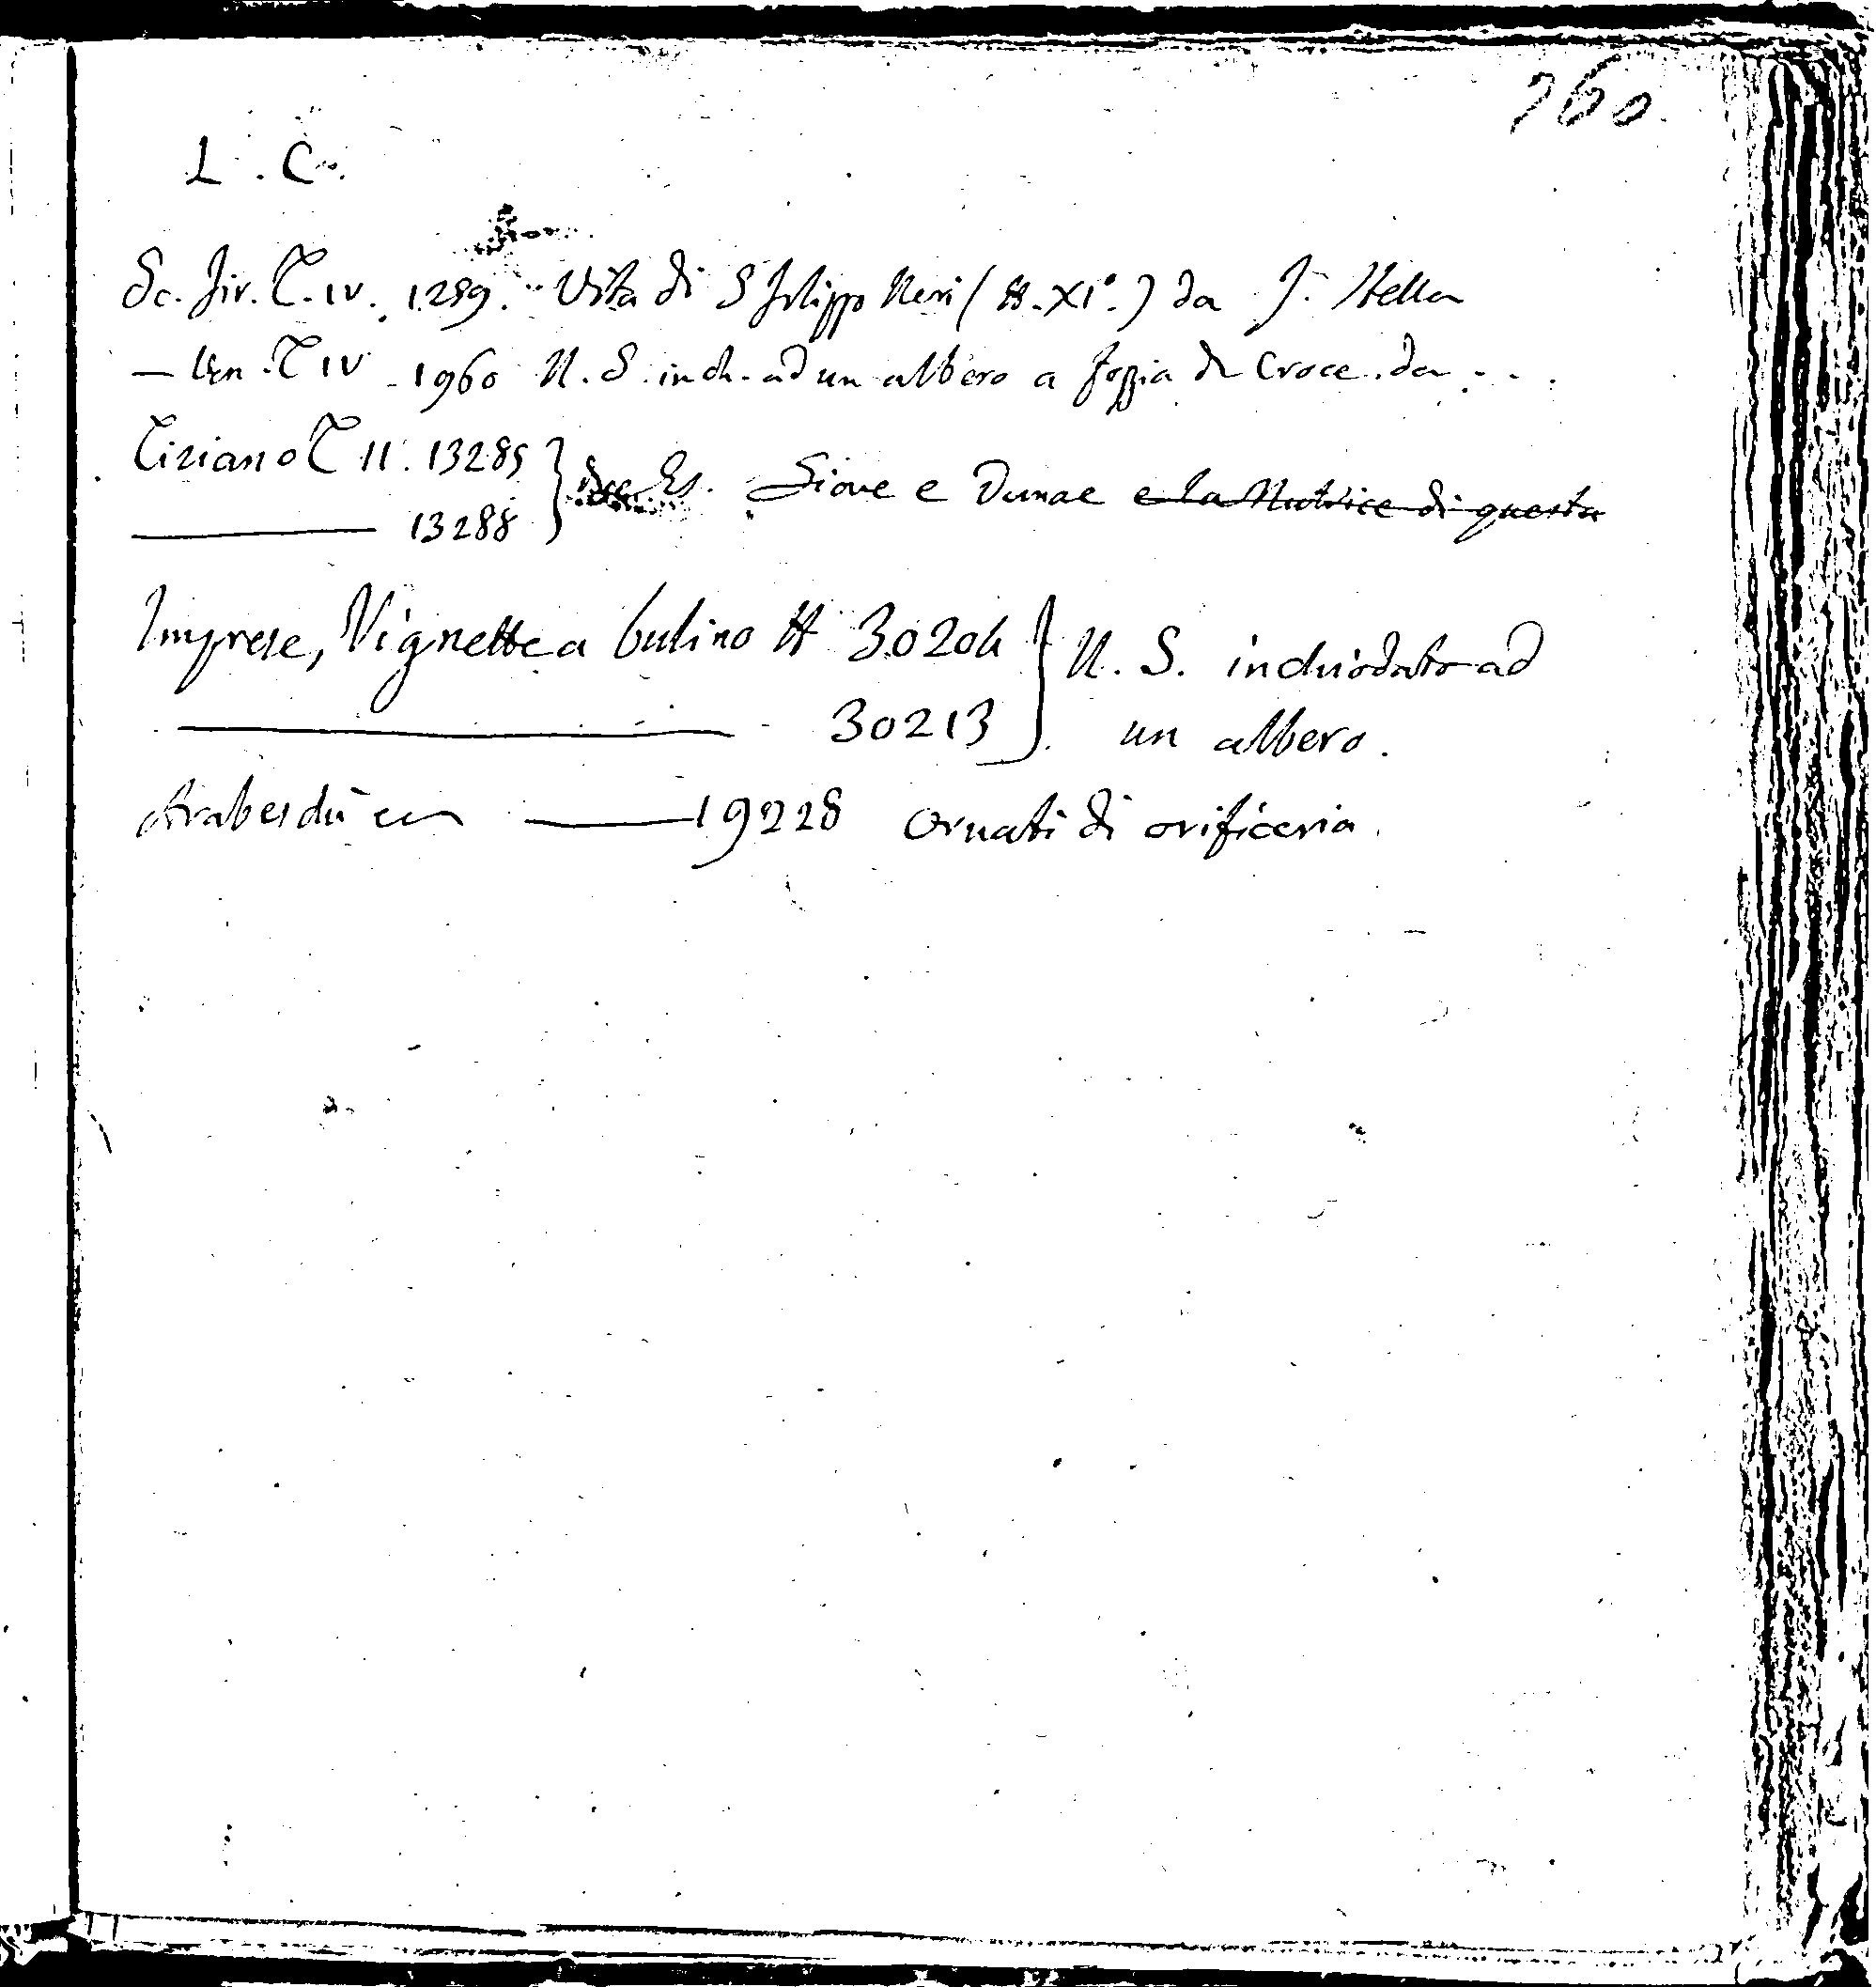 260
L. C.
Sc. Fir. T. IV. 1289. Vita di S Filippo Neri (H. XI°.) da J. Stella
— Ven. T IV 1960 N. S. inch. ad un albero a foggia di Croce. da . . .
Tiziano T II. 13285
——— 13288 } Es. Giove e Danae e la Nutrice di questa
Imprese, Vignette a bulino H 30204 } N. S. inchiodato ad
——— 30213 un albero.
——— 19228 Ornati di orificeria.